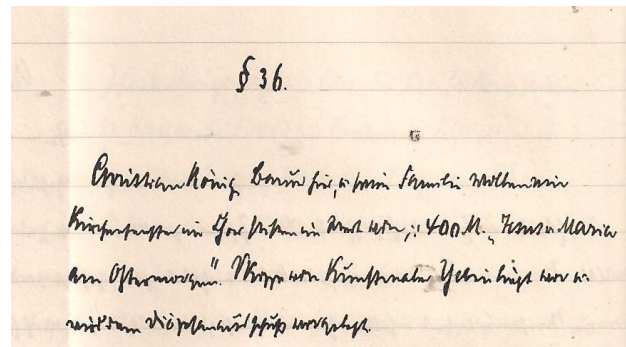 § 36.
Christian König, Bauer hier, u. seine Familie wollen ein
Kirchenfenster im Chor stiften im Wert von 400 M. „Jesus u. Maria
am Ostermorgen“. Skizze von Kunstmaler liegt vor u.
wird dem Diözesanausschuß vorgelegt.